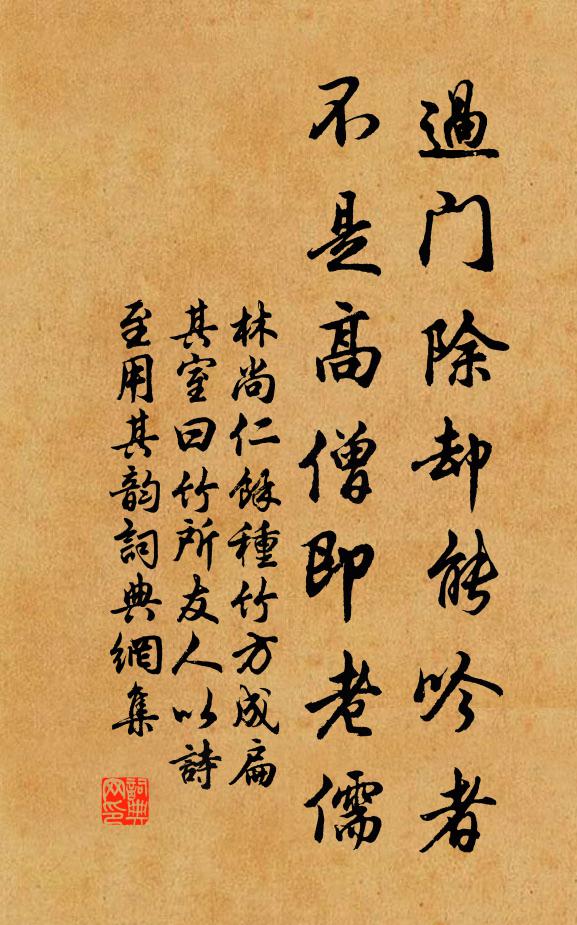 過門除却能吟者
不是高僧即老儒
林尚仁餘種竹方成扁
其室曰竹所友人以詩
至用其韵詞典網集
詞典
网印